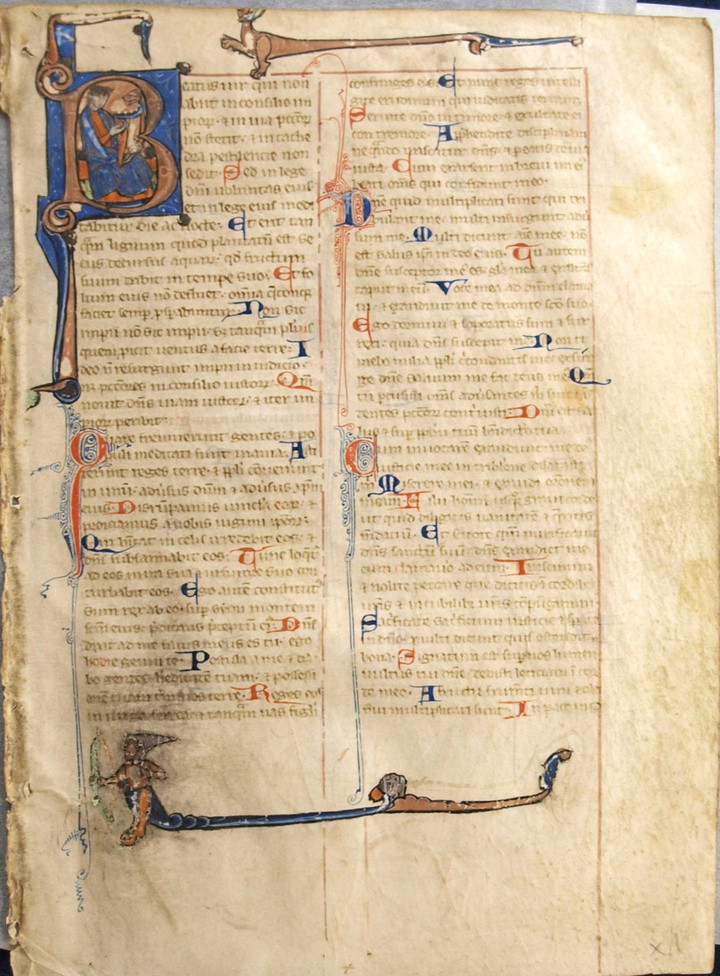 Beatus uir qui non
abiit in consilio im
piorum & in uia pctõr
nõ stetit · & in cathe
dra pestilencie non
sedit · Sed in lege
dñi uoluntas eius
et in lege eius medi
tabitur die ac nocte · Et erit tan
qm lignum quod plantatũ est se
cus decursus aquarum · qđ fructum
suum dabit in tempe suo · Et fo
lium eius nõ defluet · omia qcũqʒ
faciet semp psperabuntur · Non sic
impii nõ sic · tanqm puluis
quem picit uentus a facie terre · I
deo ñ resurgunt impii in iudicio
pctores in consilio iustorum · Qm
nouit dñs uiam iustorum & iter im
piorum peribit
Quare fremuerunt gentes · & po
puli meditati sunt inania · Asti
terunt reges terre & conuenerunt
in unũ · aduersus dñm & aduersus xpm
eius · Disrumpamus uincla eorum &
proiciamus a nobis iugum ipsorum
Qui habitat in celis irridebit eos · &
dñs subsannabit eos · Tunc loqt
ad eos in ira sua & in furore suo con
turbabit eos · Ego autem constitut
sum rex ab eo · sup syon montem
scm eius · pdicans pceptũ ei · Dñs
dixit ad me filius meus es tu · ego
hodie genui te · Postula a me & da
bo gentes hereditatẽ tuam · & possessi
onẽ tuam tminos terre · Reges eos
in uirga ferrea & tanqm uas figuli
confringes eos · Et nunc reges intelli
gite erudimini qui iudicatis terram
Seruite dño in timore & exultate ei
cum tremore · Apphendite disciplinam
ne qñdo irascatur dñs · & peatis de uia
iusta · Cum exarserit in breui ira ei
beati oms qui confidunt in eo
Dñe quid multiplicati sunt qui tri
bulant me · multi insurgunt adu
sum me · Multi dicunt aĩe mee · nõ
est salus ipi in deo eius · Tu autem
dñe susceptor meus es · gla mea & exaltas
caput meũ · Voce mea ad dñm clama
ui · & exaudiuit me de monte sco suo
Ego dormiui & soporatus sum & exur
rexi · quia dñs suscepit me · Non ti
mebo milia ppli circũdantis me · exurge
dñe saluum me fac deus meus · Qm
tu pcussisti oms aduersantes m sine cã
dentes pctorum contriuisti · Dñi est sa
lus & sup ppm tuũ bndictio tua
Cum inuocarem exaudiuit me deus
iusticie mee · in tribulone dilatasti m
Miserere mei · & exaudi orõnem
meam · Filii hominum usqʒ graui corde
ut quid diligitis uanitatẽ & qritis
mdaciũ · Et scitote qm mirificauit
dñs sanctũ suũ · dñs exaudiet me
cum clamauero ad eum · Irascimini
& nolite peccare que dicitis i cordibus
uris & in cubilibus uris compungimini
Sacrificate sacrificium iusticie & sperate
in dño · multi dicunt quis ostendit nob
bona · Signatum est sup nos lumen
uultus tui dñe · dedisti leticiam i cor
de meo · A fructu frumti uini & olei
sui multiplicati sunt · In pace in id